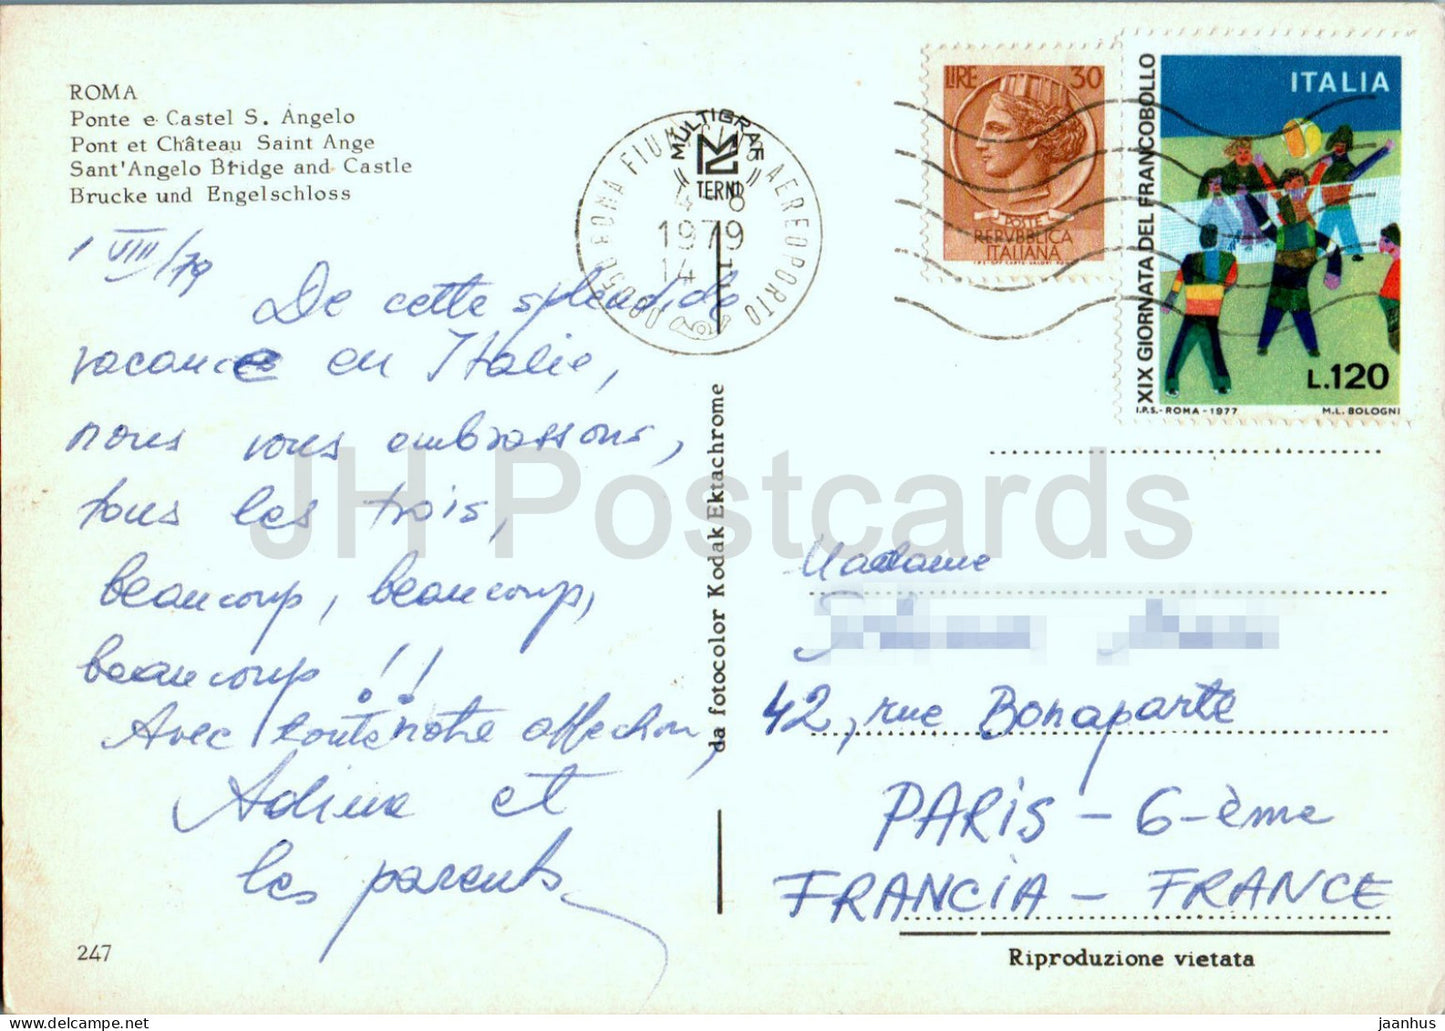 ROMA
Ponte e Castel S. Angelo
Pont et Château Saint Ange
Sant'Angelo Bridge and Castle
Brucke und Engelschloss
1 VIII/79
De cette splendide
vacance en Italie,
nous vous embrassons,
tous les trois,
beaucoup, beaucoup,
beaucoup!!
Avec toute notre affection,
Adina et
les parents
247
da fotocolor Kodak Ektachrome
MULTIGRAF
TERNI
ROMA FIUMICINO AEREOPORTO
4 8
1979
14
LIRE 30
POSTE
REPVBBLICA
ITALIANA
ITALIA
XIX GIORNATA DEL FRANCOBOLLO
L.120
I.P.S.-ROMA-1977 M.L. BOLOGNI
Madame
42, rue Bonaparte
PARIS - 6-ème
FRANCIA - FRANCE
Riproduzione vietata
JH Postcards
jaanhus - delcampe.net